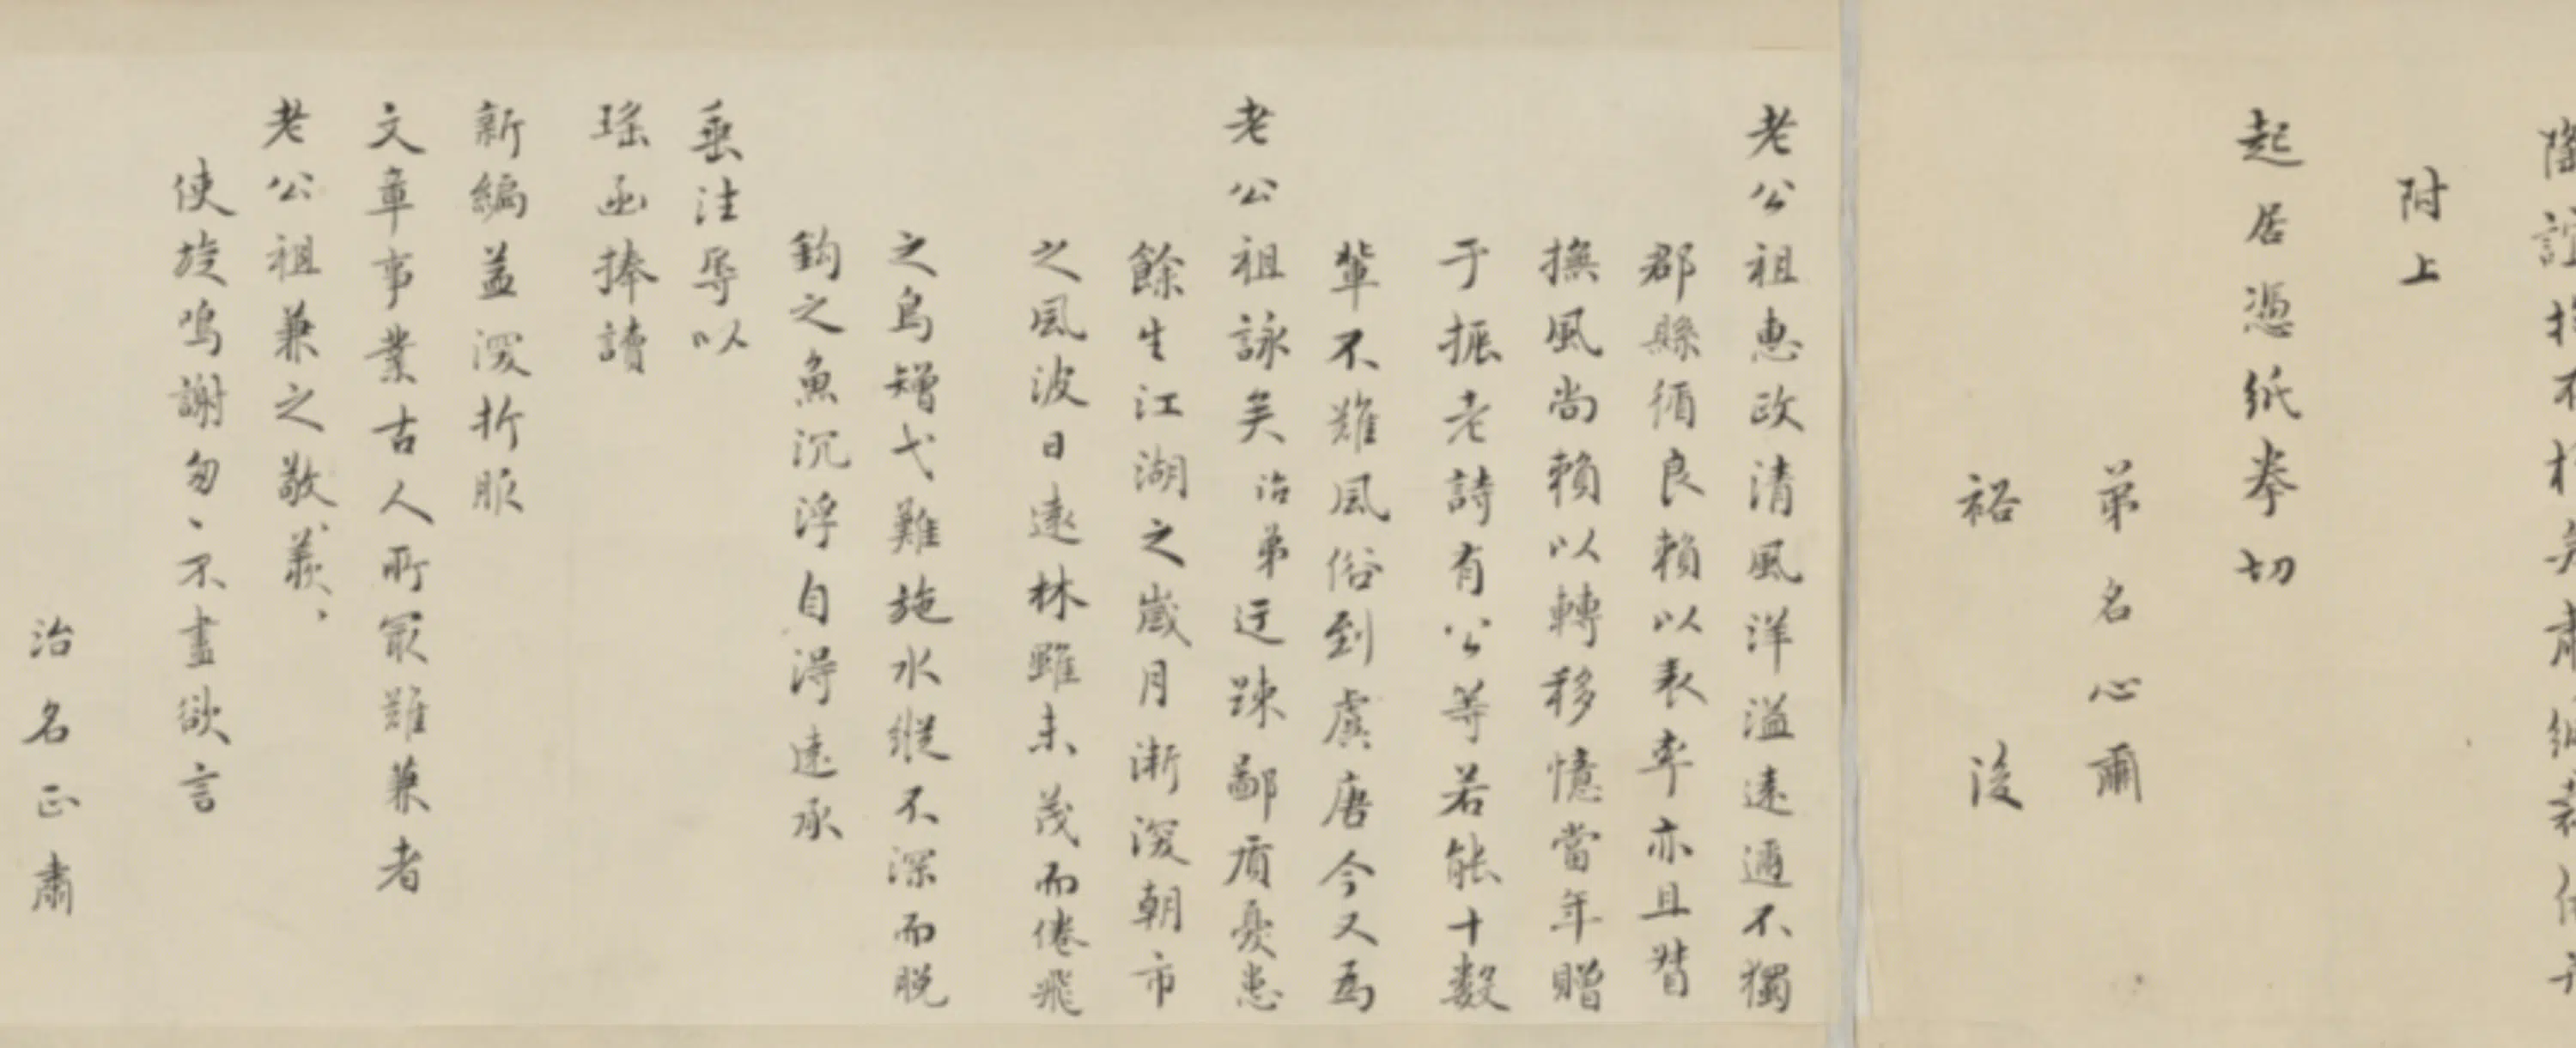 附上
起居憑紙拳切
弟名心爾
裕後
老公祖惠政清風洋溢遠邇不獨
郡縣循良賴以表率亦且皆
撫風尚賴以轉移憶當年贈
于振老詩有公等若能十數
輩不難風俗到虞唐今又為
老公祖詠矣治弟迂疎鄙盾憂患
餘生江湖之歲月漸深朝市
之風波日遠林雖未茂而倦飛
之鳥矰弋難施水縱不深而脫
鈎之魚沉浮自得遠承
垂注辱以
瑤函捧讀
新編益深折服
文章事業古人所最難兼者
老公祖兼之敬羨、
使旋鳴謝匆、不盡欲言
治名正肅